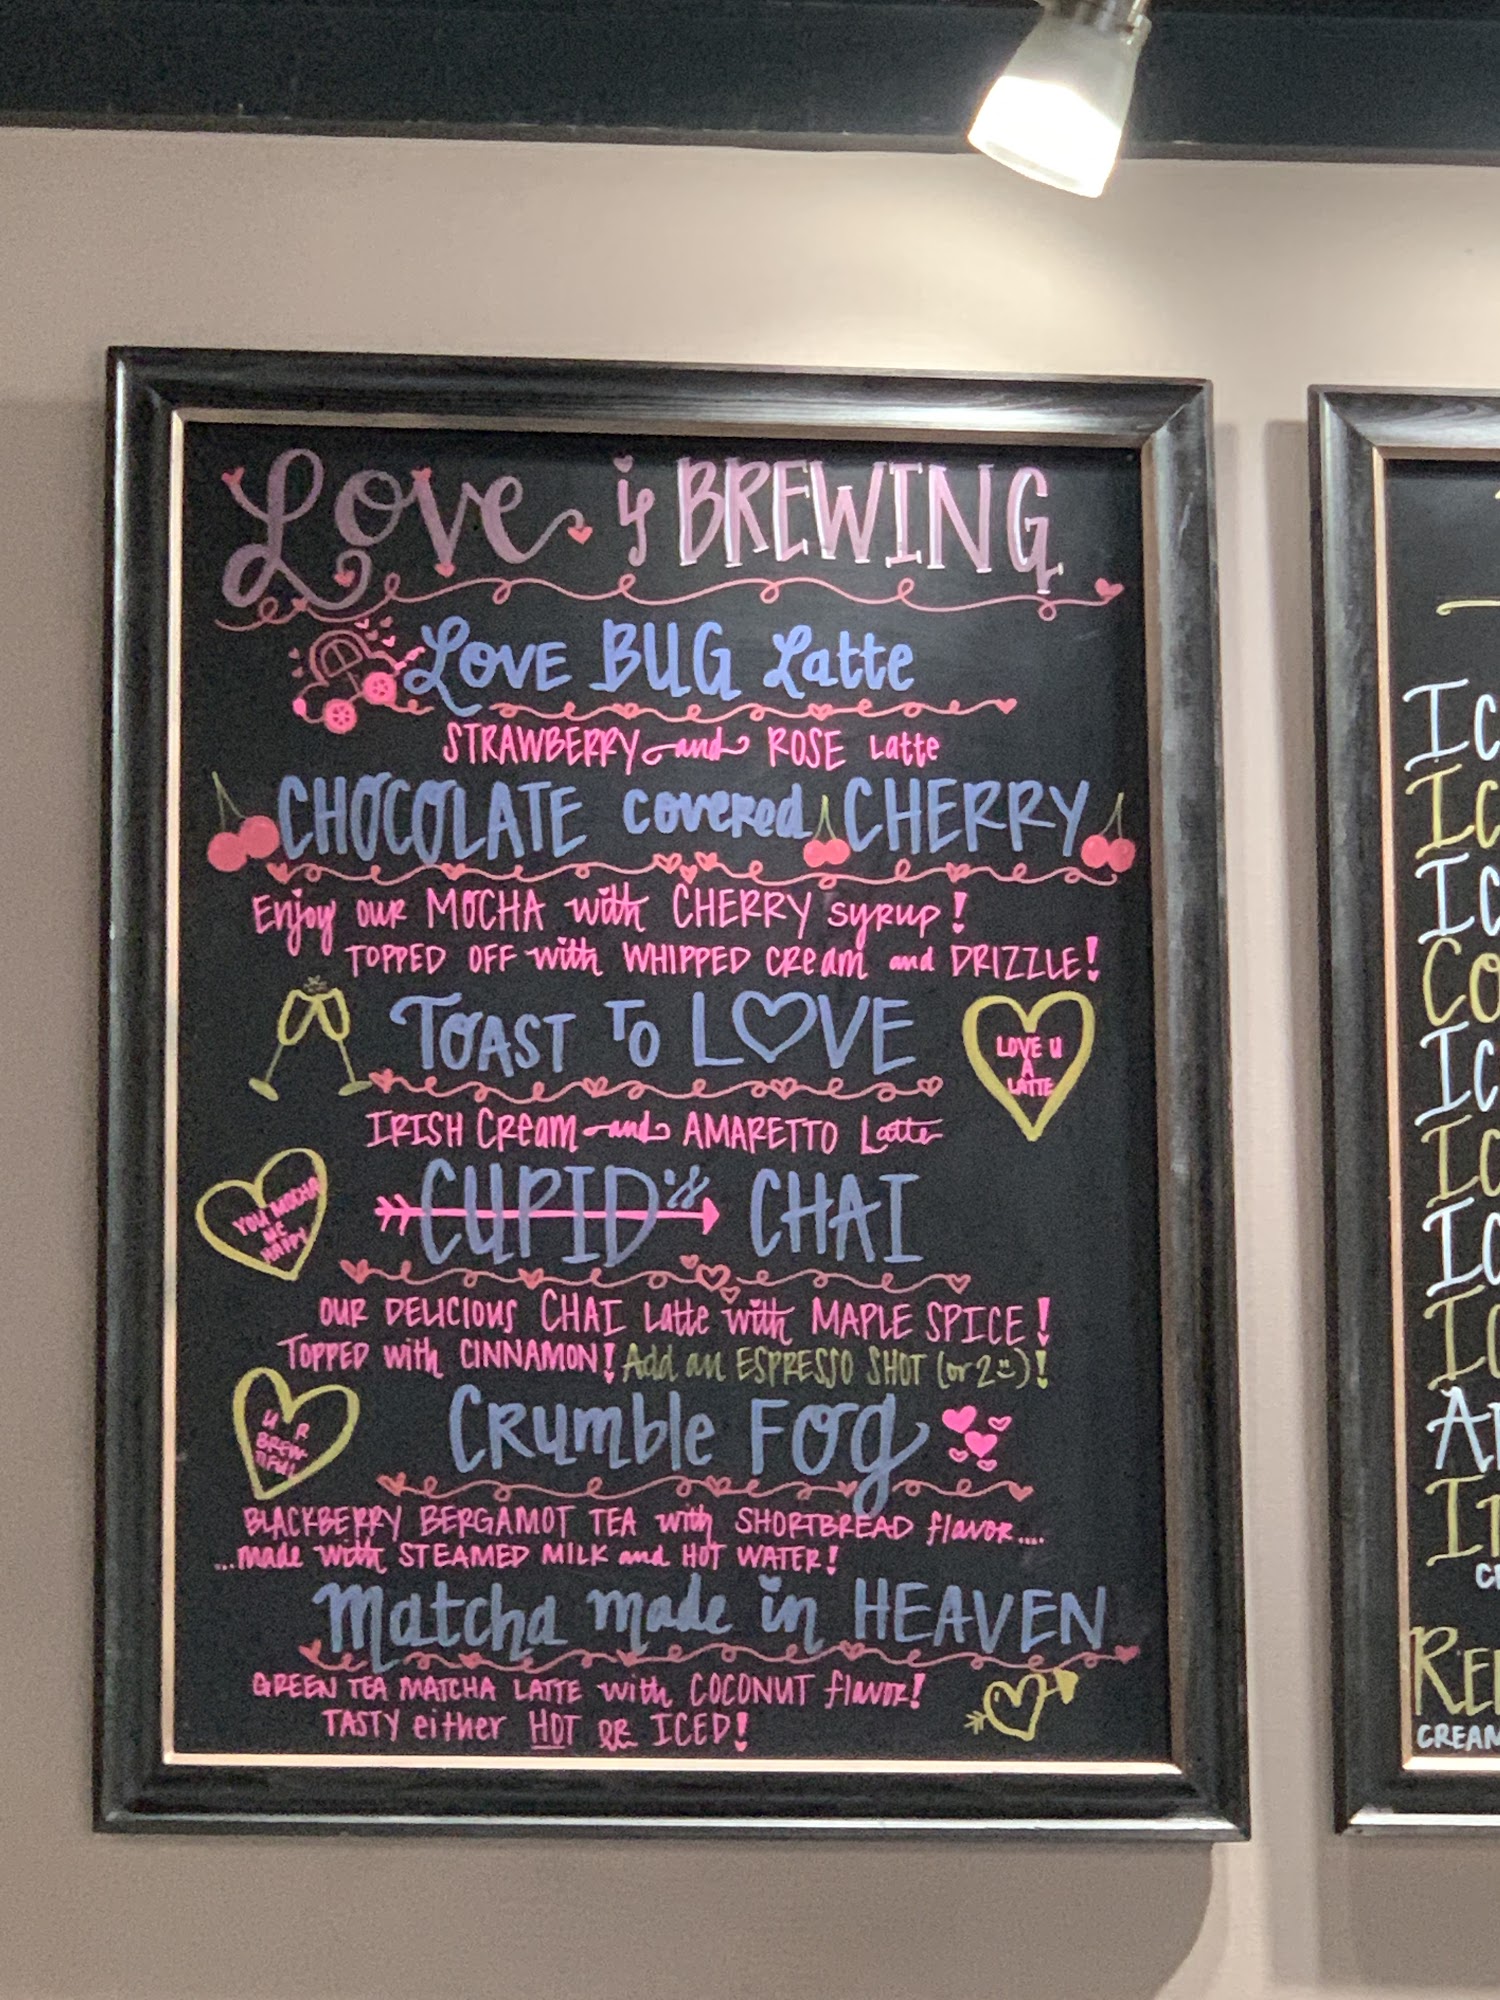 Love is BREWING
LOVE BUG Latte
STRAWBERRY and ROSE Latte
CHOCOLATE covered CHERRY
Enjoy OUR MOCHA with CHERRY syrup!
TOPPED OFF with WHIPPED CREAM and DRIZZLE!
TOAST TO LOVE
LOVE U
A
LATTE
IRISH CREAM and AMARETTO Latte
CUPID's CHAI
YOU MOCHA
ME
HAPPY
OUR DELICIOUS CHAI Latte with MAPLE SPICE!
TOPPED with CINNAMON! Add an ESPRESSO SHOT (or 2 :))!
CRumble FOg
U R
BREW-
TIFUL
BLACKBERRY BERGAMOT TEA with SHORTBREAD flavor....
...made with STEAMED MILK and HOT WATER!
Matcha made in HEAVEN
GREEN TEA MATCHA LATTE with COCONUT flavor!
TASTY either HOT OR ICED!
CREAM